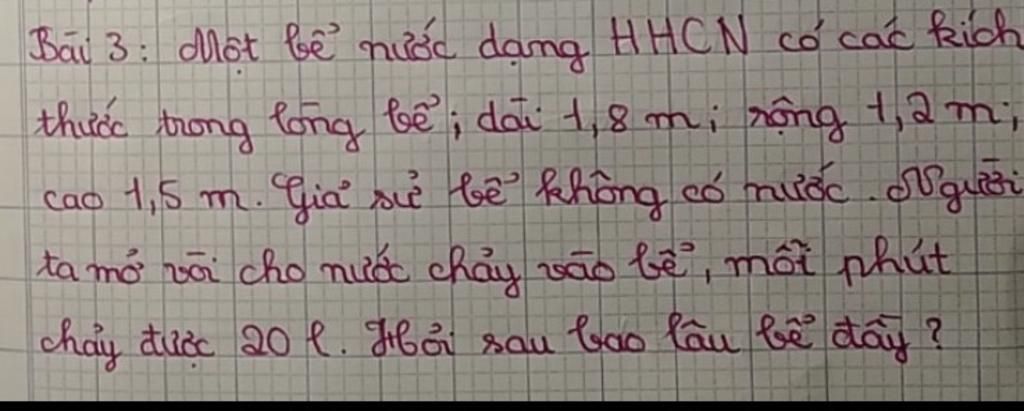 Bài 3: Một bể nước dạng HHCN có các kích
thước trong lòng bể; dài 1,8 m; rộng 1,2 m;
cao 1,5 m. Giả sử bể không có nước. Người
ta mở vòi cho nước chảy vào bể, mỗi phút
chảy được 20 l. Hỏi sau bao lâu bể đầy?